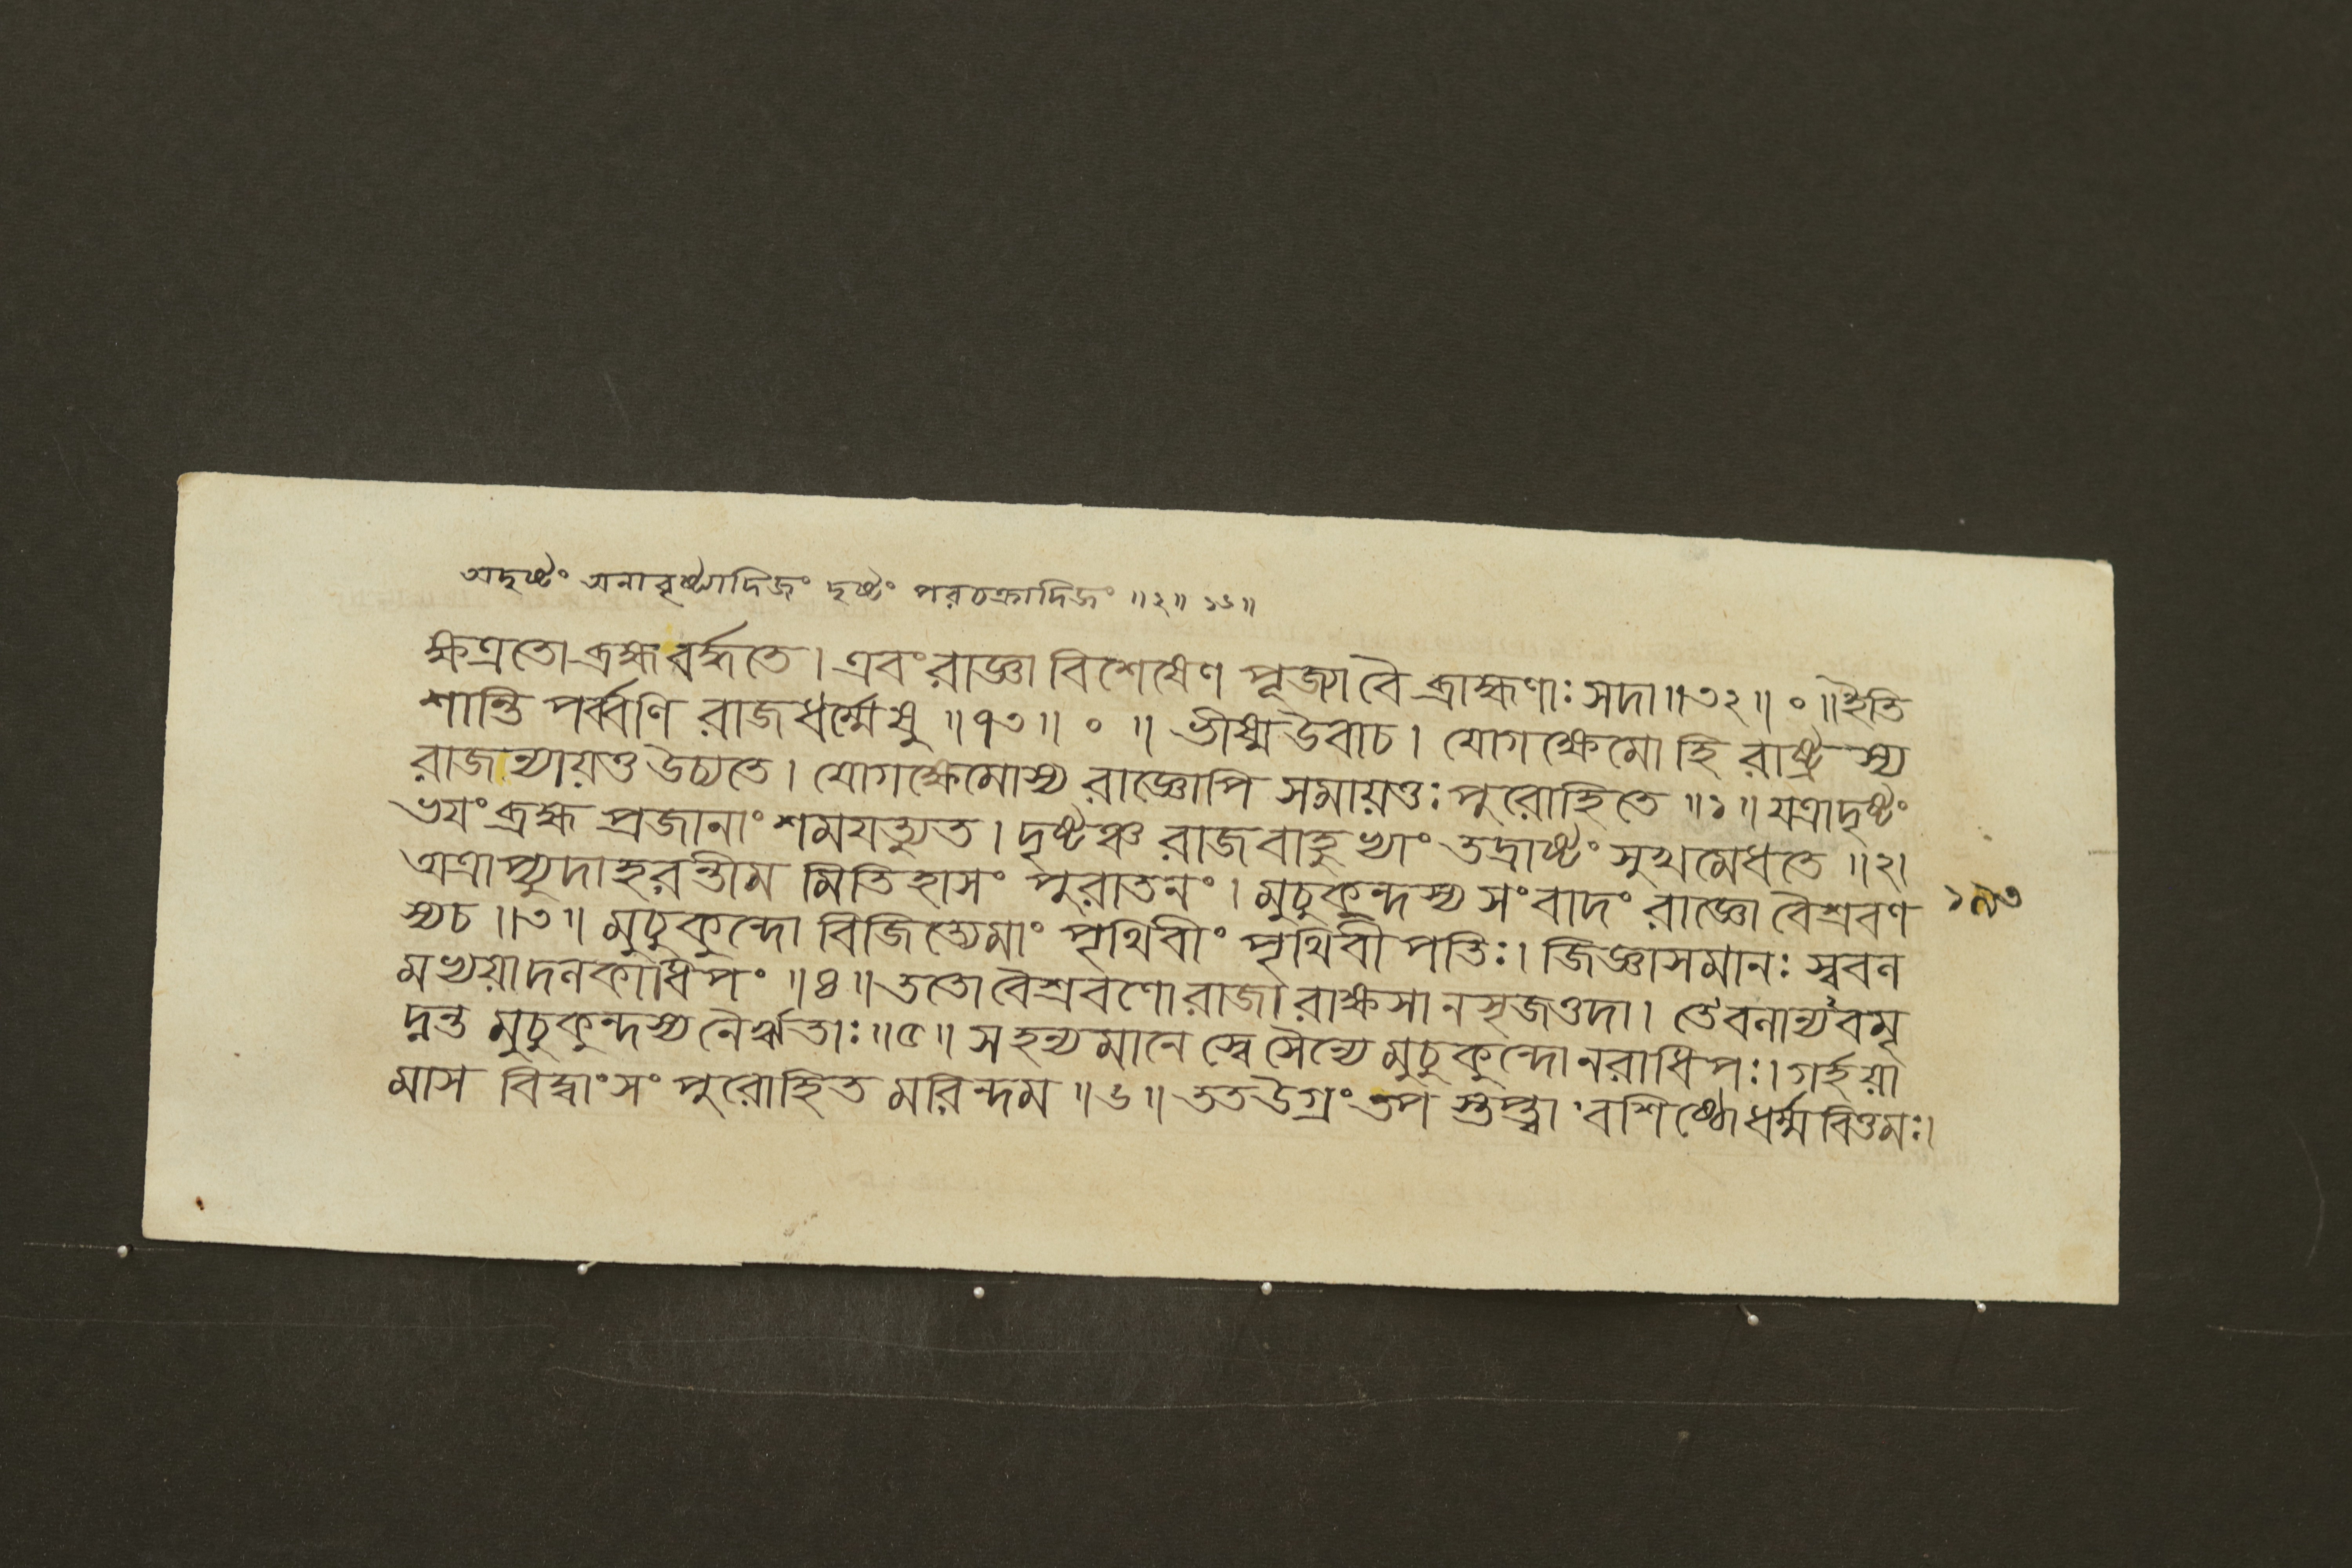 অদৃষ্টং অনাবৃষ্ট্যাদিজং দৃষ্টং পরচক্রাদিজং ॥২॥ ১৬॥
ক্ষত্রতো ব্রহ্ম বর্দ্ধতে। এবং রাজ্ঞা বিশেষেণ পূজ্যা বৈ ব্রাহ্মণাঃ সদা॥৩২॥ ॰ ॥ইতি
শান্তি পর্ব্বণি রাজধর্ম্মেষু ॥৭৩॥ ॰ ॥ ভীষ্ম উবাচ। যোগক্ষেমো হি রাষ্ট্রস্য
রাজান্যায়ত্ত উচ্যতে। যোগক্ষেমোস্য রাজ্ঞোপি সমায়ত্তঃ পুরোহিতে ॥১॥ যত্রাদৃষ্টং
ভযং ব্রহ্ম প্রজানাং শমযত্যুত। দৃষ্টঞ্চ রাজবাহুভ্যাং তদ্রাষ্টং সুখমেধতে ॥২।
অত্রাপ্যুদাহরন্তীম মিতিহাসং পুরাতনং। মুচুকুন্দস্য সংবাদং রাজ্ঞো বৈশ্রবণ
১৯৩
স্যচ ॥৩॥ মুচুকুন্দো বিজিত্যেমাং পৃথিবীং পৃথিবীপতিঃ। জিজ্ঞাসমানঃ স্ববন
মভ্যয়াদনকাধিপং ॥৪॥ ততো বৈশ্রবণো রাজা রাক্ষসানসৃজত্তদা। তেবনান্যবমৃ
দ্নন্ত মুচুকুন্দস্য নৈর্ঋতাঃ॥৫॥ সহন্যমানে স্বে সৈন্যে মুচুকুন্দো নরাধিপঃ। গর্হয়া
মাস বিদ্বাংসং পুরোহিত মরিন্দম ॥৬॥ তত উগ্রং তপ স্তপ্ত্বা বশিষ্ঠো ধর্ম্মবিত্তমঃ।